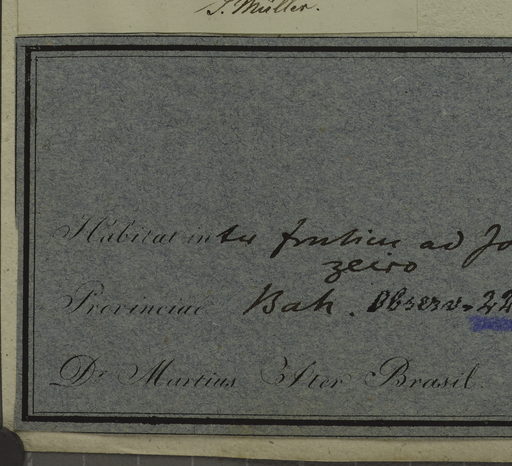 J. Müller.
Habitat inter frutices ad Jo
zeiro
Provinciae Bah. Observ. 22
Dr Martius Iter Brasil.